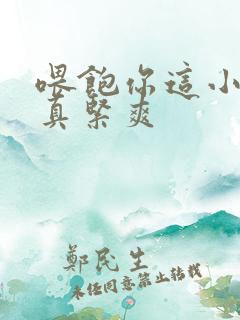 喂飽你這小
真緊爽
鄭民生
未經同意禁止轉載